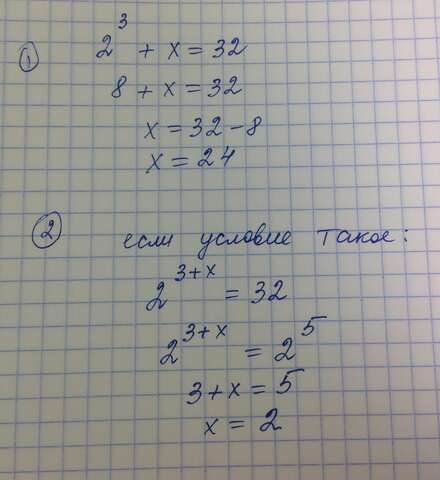 ① 2³ + x = 32
8 + x = 32
x = 32 - 8
x = 24
② если условие такое:
2³⁺ˣ = 32
2³⁺ˣ = 2⁵
3 + x = 5
x = 2